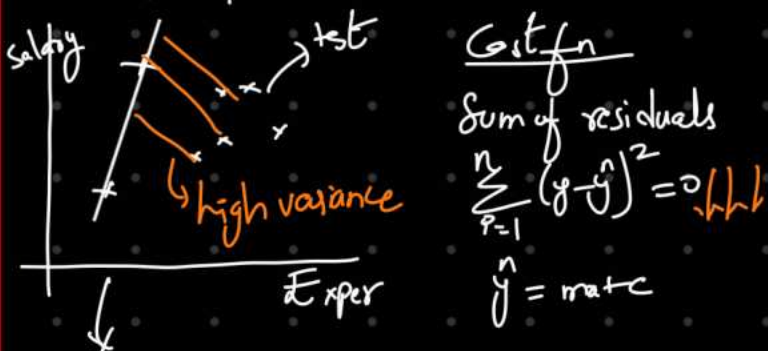 Salary
test
high variance
Exper
Cost fn
Sum of residuals
n
∑ (y-ŷ)² = 0
i=1
ŷ = mx+c